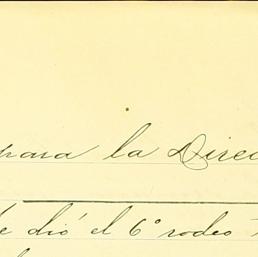 para la Direc
se dió el 6º rodeo